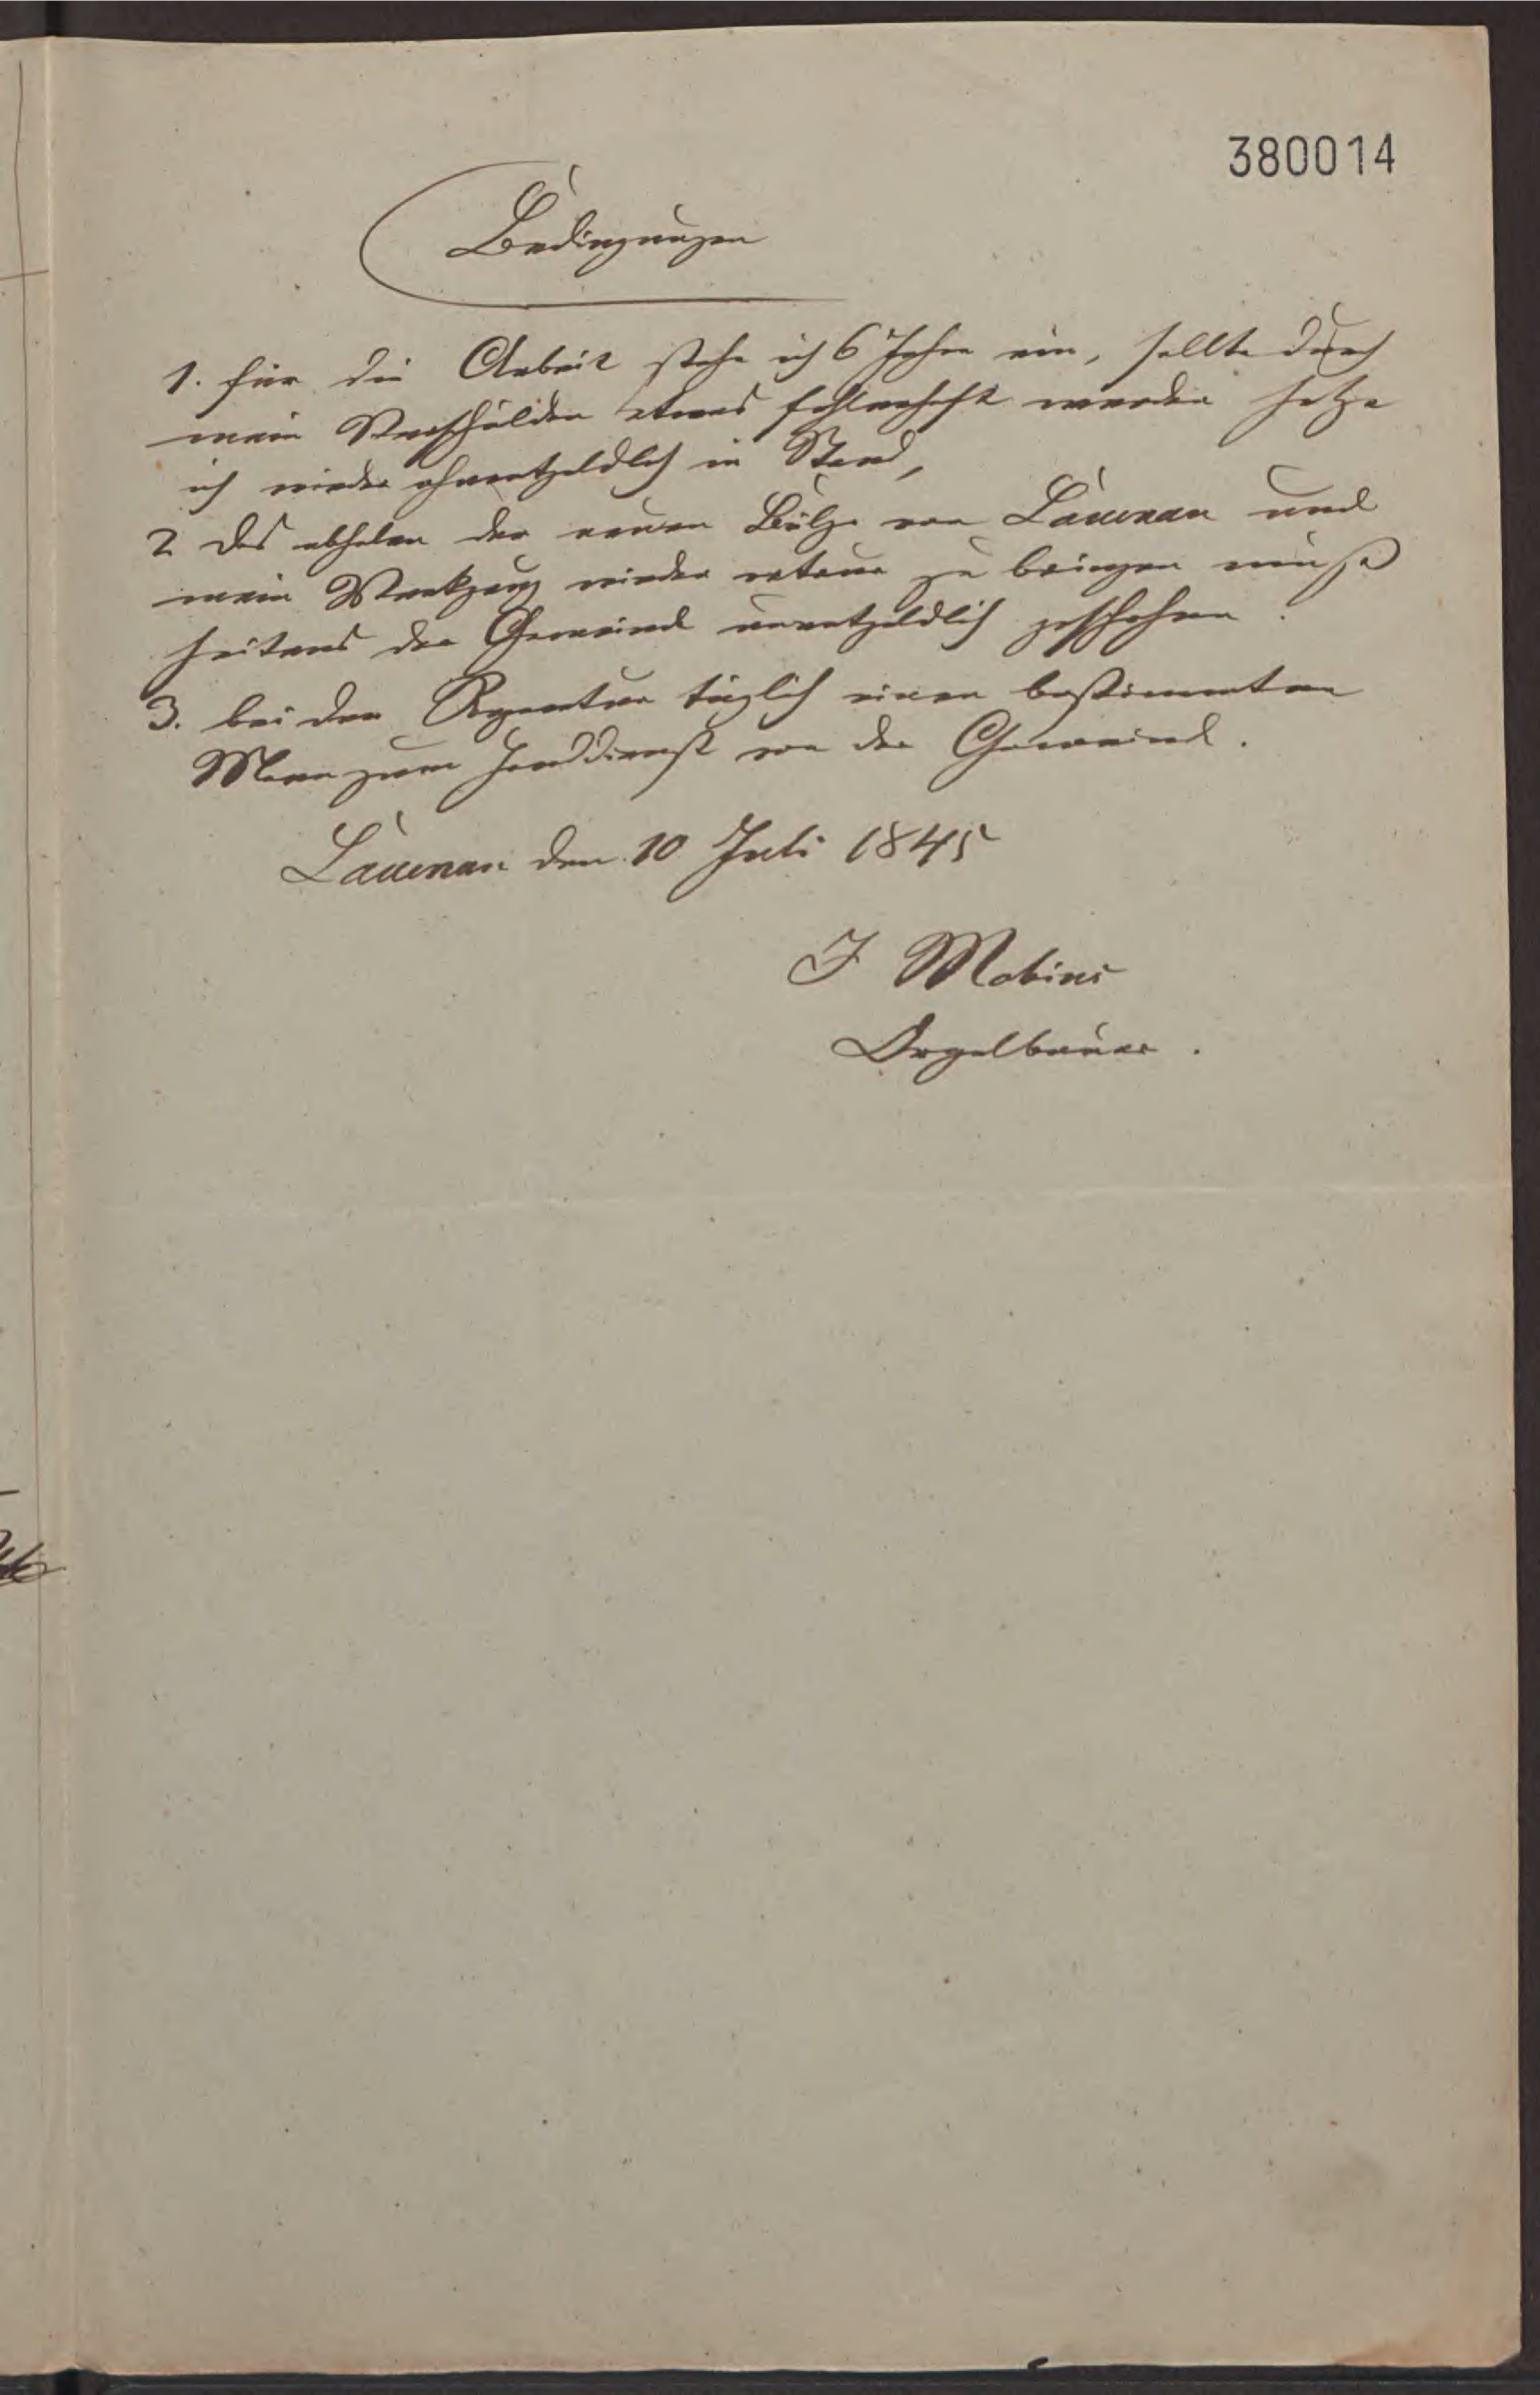 380014
Bedingungen
1. für die Arbeit stehe ich 6 Jahre ein, sollte durch
mein Verschulden etwas fehlerhaft werden setze
ich wieder ohnentgeldlich in Stand,
2 das abholen der neuen Bälge von Lauenau und
mein Werkzeug wieder retour zu bringen muß
seitens der Gemeinde unentgeldlich geschehen.
3. bei der Reparatur täglich einen bestimmten
Mann zum Handdienst von der Gemeinde.
Lauenau den 10 Juli 1845
J Möbius
Orgelbauer.